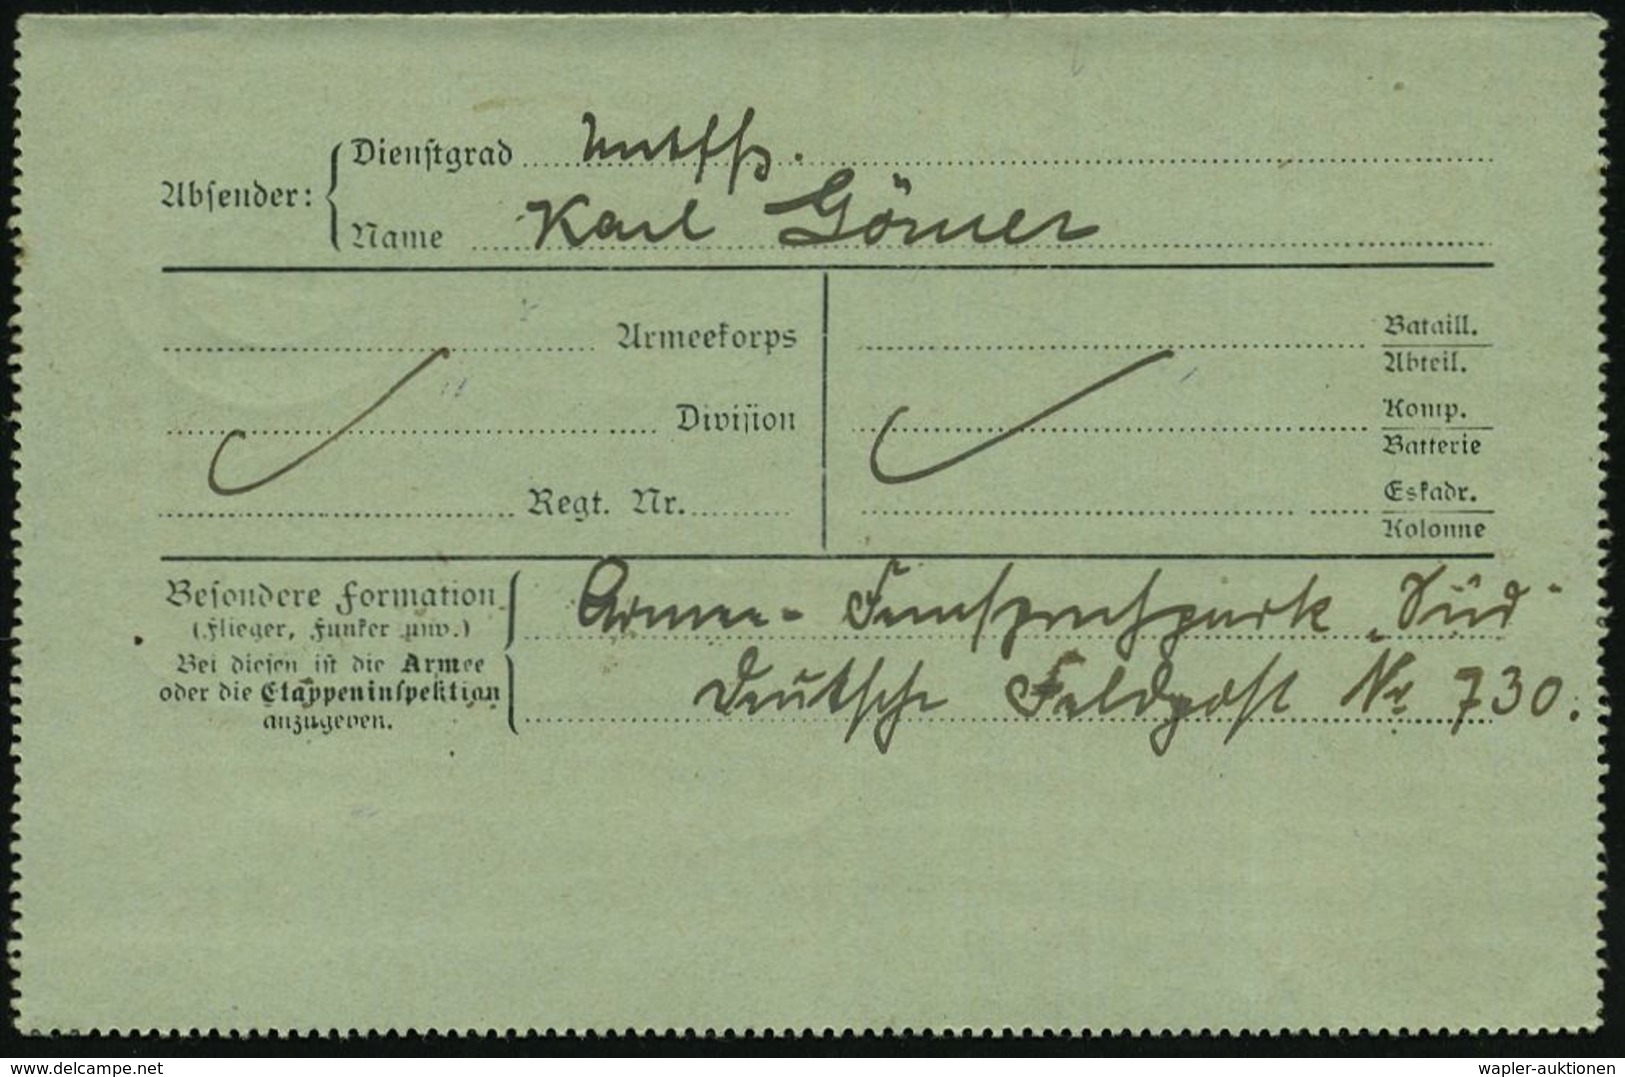 Absender:
Dienstgrad Untffz.
Name Karl Görner
Armeekorps
Division
Regt. Nr.
Bataill.
Abteil.
Komp.
Batterie
Eskadr.
Kolonne
Besondere Formation
(Flieger, Funker usw.)
Bei diesen ist die Armee
oder die Etappeninspektion
anzugeben.
Armee- Fernsprechpark „Süd"
Deutsche Feldpost Nr 730.
www.delcampe.net
wapler-auktionen